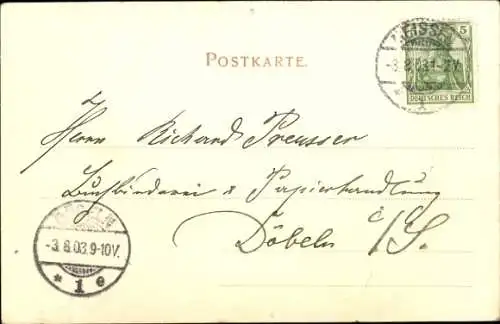 POSTKARTE.
MEISSEN
5
-3.8.03.1-2V.
DEUTSCHES REICH
1
Herrn Richard Preusser
Buchbinderei & Papierhandlung
Döbeln i/S.
DÖBELN
-3.8.03.9-10V.
* 1 e